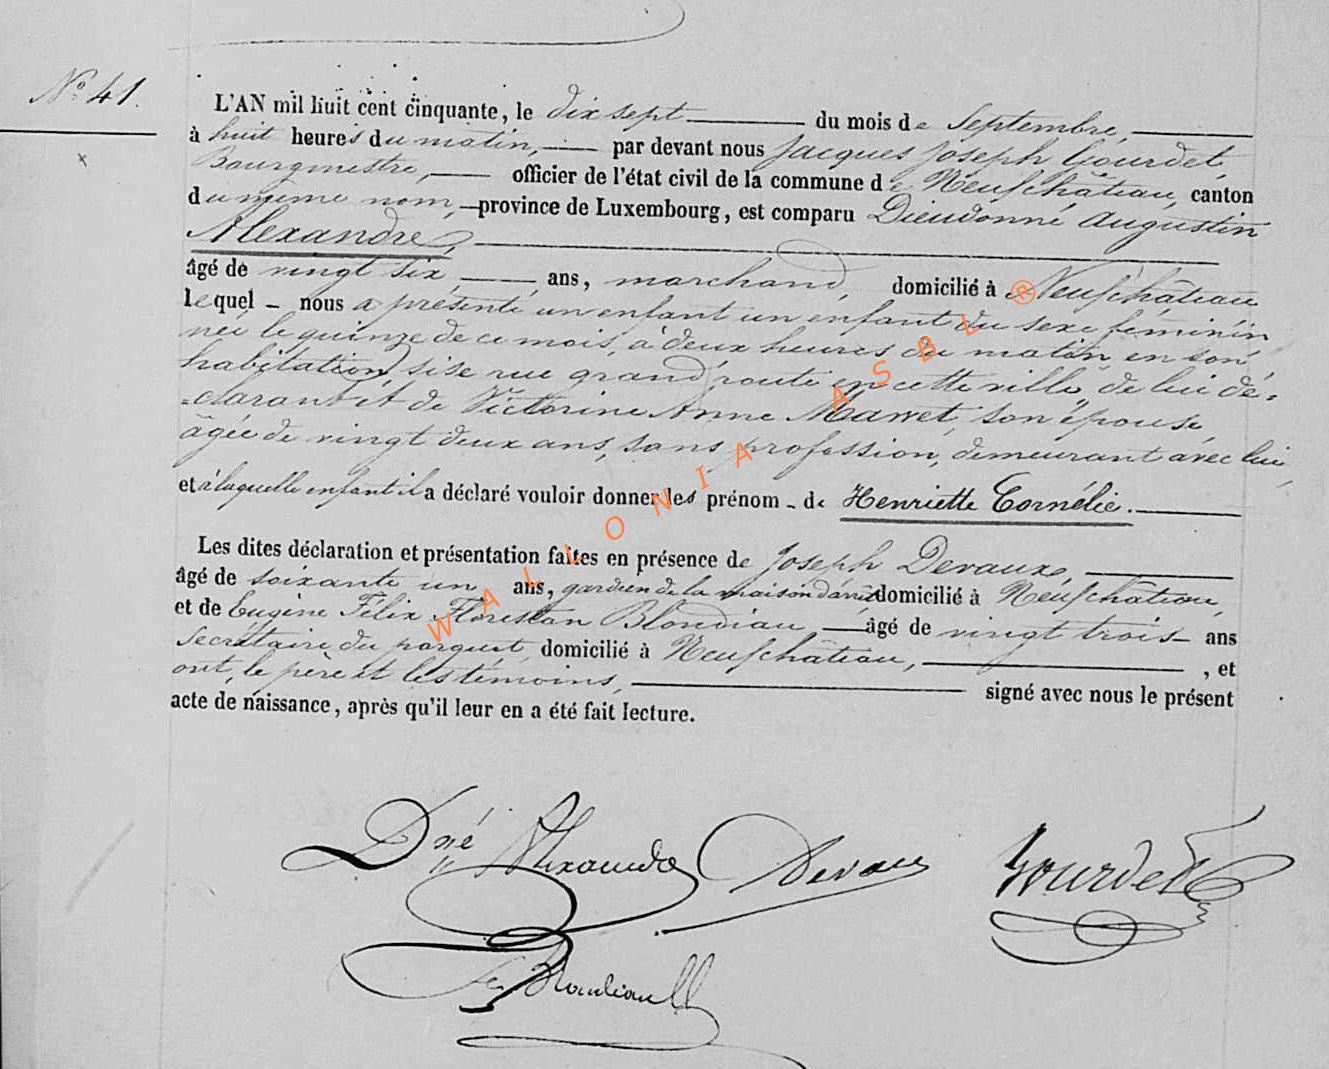 N° 41.
L'AN mil huit cent cinquante, le dix sept du mois de Septembre,
à huit heures du matin, par devant nous Jacques Joseph Gourdet,
Bourgmestre, officier de l'état civil de la commune de Neufchâteau, canton
du même nom, province de Luxembourg, est comparu Dieudonné Augustin
Alexandre,
âgé de vingt six, ans, marchand, domicilié à Neufchâteau
lequel - nous a présenté un enfant un enfant du sexe féminin
née le quinze de ce mois, à deux heures du matin, en son
habitation, sise rue grand'route en cette ville, de lui dé-
=clarant et de Victorine Anne Marret, son épouse,
âgée de vingt deux ans, sans profession, demeurant avec lui,
et à laquelle enfant il a déclaré vouloir donner les prénom - de Henriette Cornélie.
Les dites déclaration et présentation faites en présence de Joseph Devaux,
âgé de soixante un ans, gardien de la maison d'arrêt domicilié à Neufchâteau,
et de Eugène Félix Florestan Blondiau âgé de vingt trois ans
Secrétaire du parquet, domicilié à Neufchâteau, , et
ont, le père et les témoins, signé avec nous le présent
acte de naissance, après qu'il leur en a été fait lecture.
Dné Alexandre Devaux Gourdet
Blondiau
WALLONIA ASBL ®